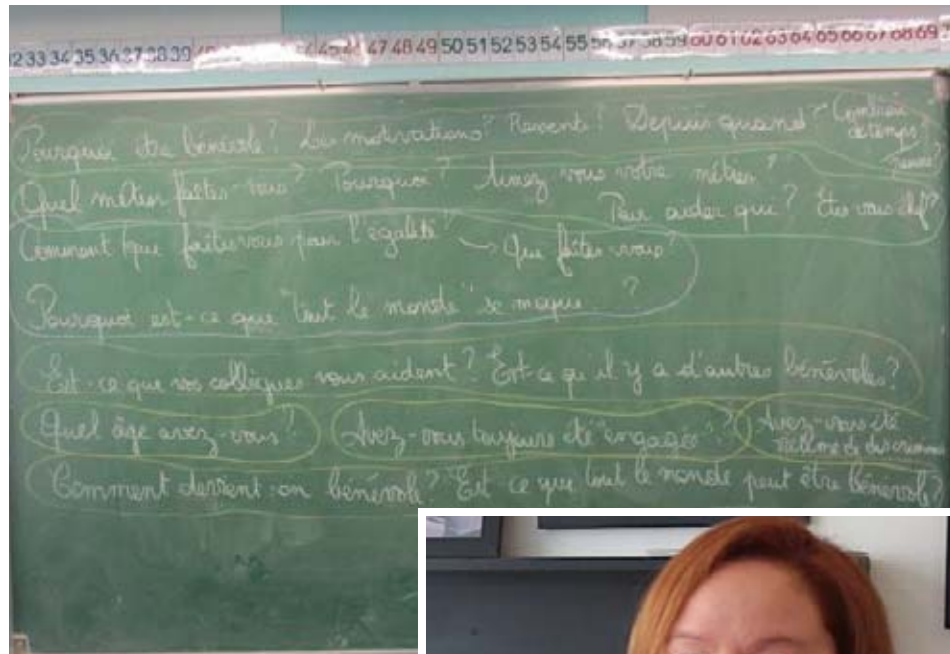 33 34 35 36 37 38 39 47 48 49 50 51 52 53 54 55 56 57 58 59 60 61 62 63 64 65 66 67 68 69
Pourquoi être bénévole ? Les motivations ? Ressenti ? Depuis quand ? Combien
de temps
Quel métier faites-vous ? Pourquoi ? Aimez vous votre métier ?
Pour aider qui ? Êtes vous chef ?
Comment / que faites vous pour l'égalité → Que faites-vous ?
Pourquoi est-ce que "tout le monde" se moque ?
Est-ce que vos collègues vous aident ? Est-ce qu'il y a d'autres bénévoles ?
Quel âge avez-vous ? Avez-vous toujours été "engagée" ? Avez-vous été
victime de
Comment devient-on bénévole ? Est ce que tout le monde peut être bénévole ?